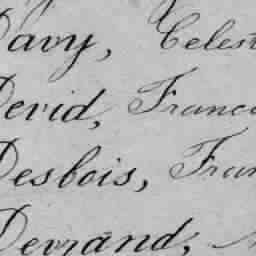 Davy, Celest
Devid, Franco
Desbois, Fran
Devrand,